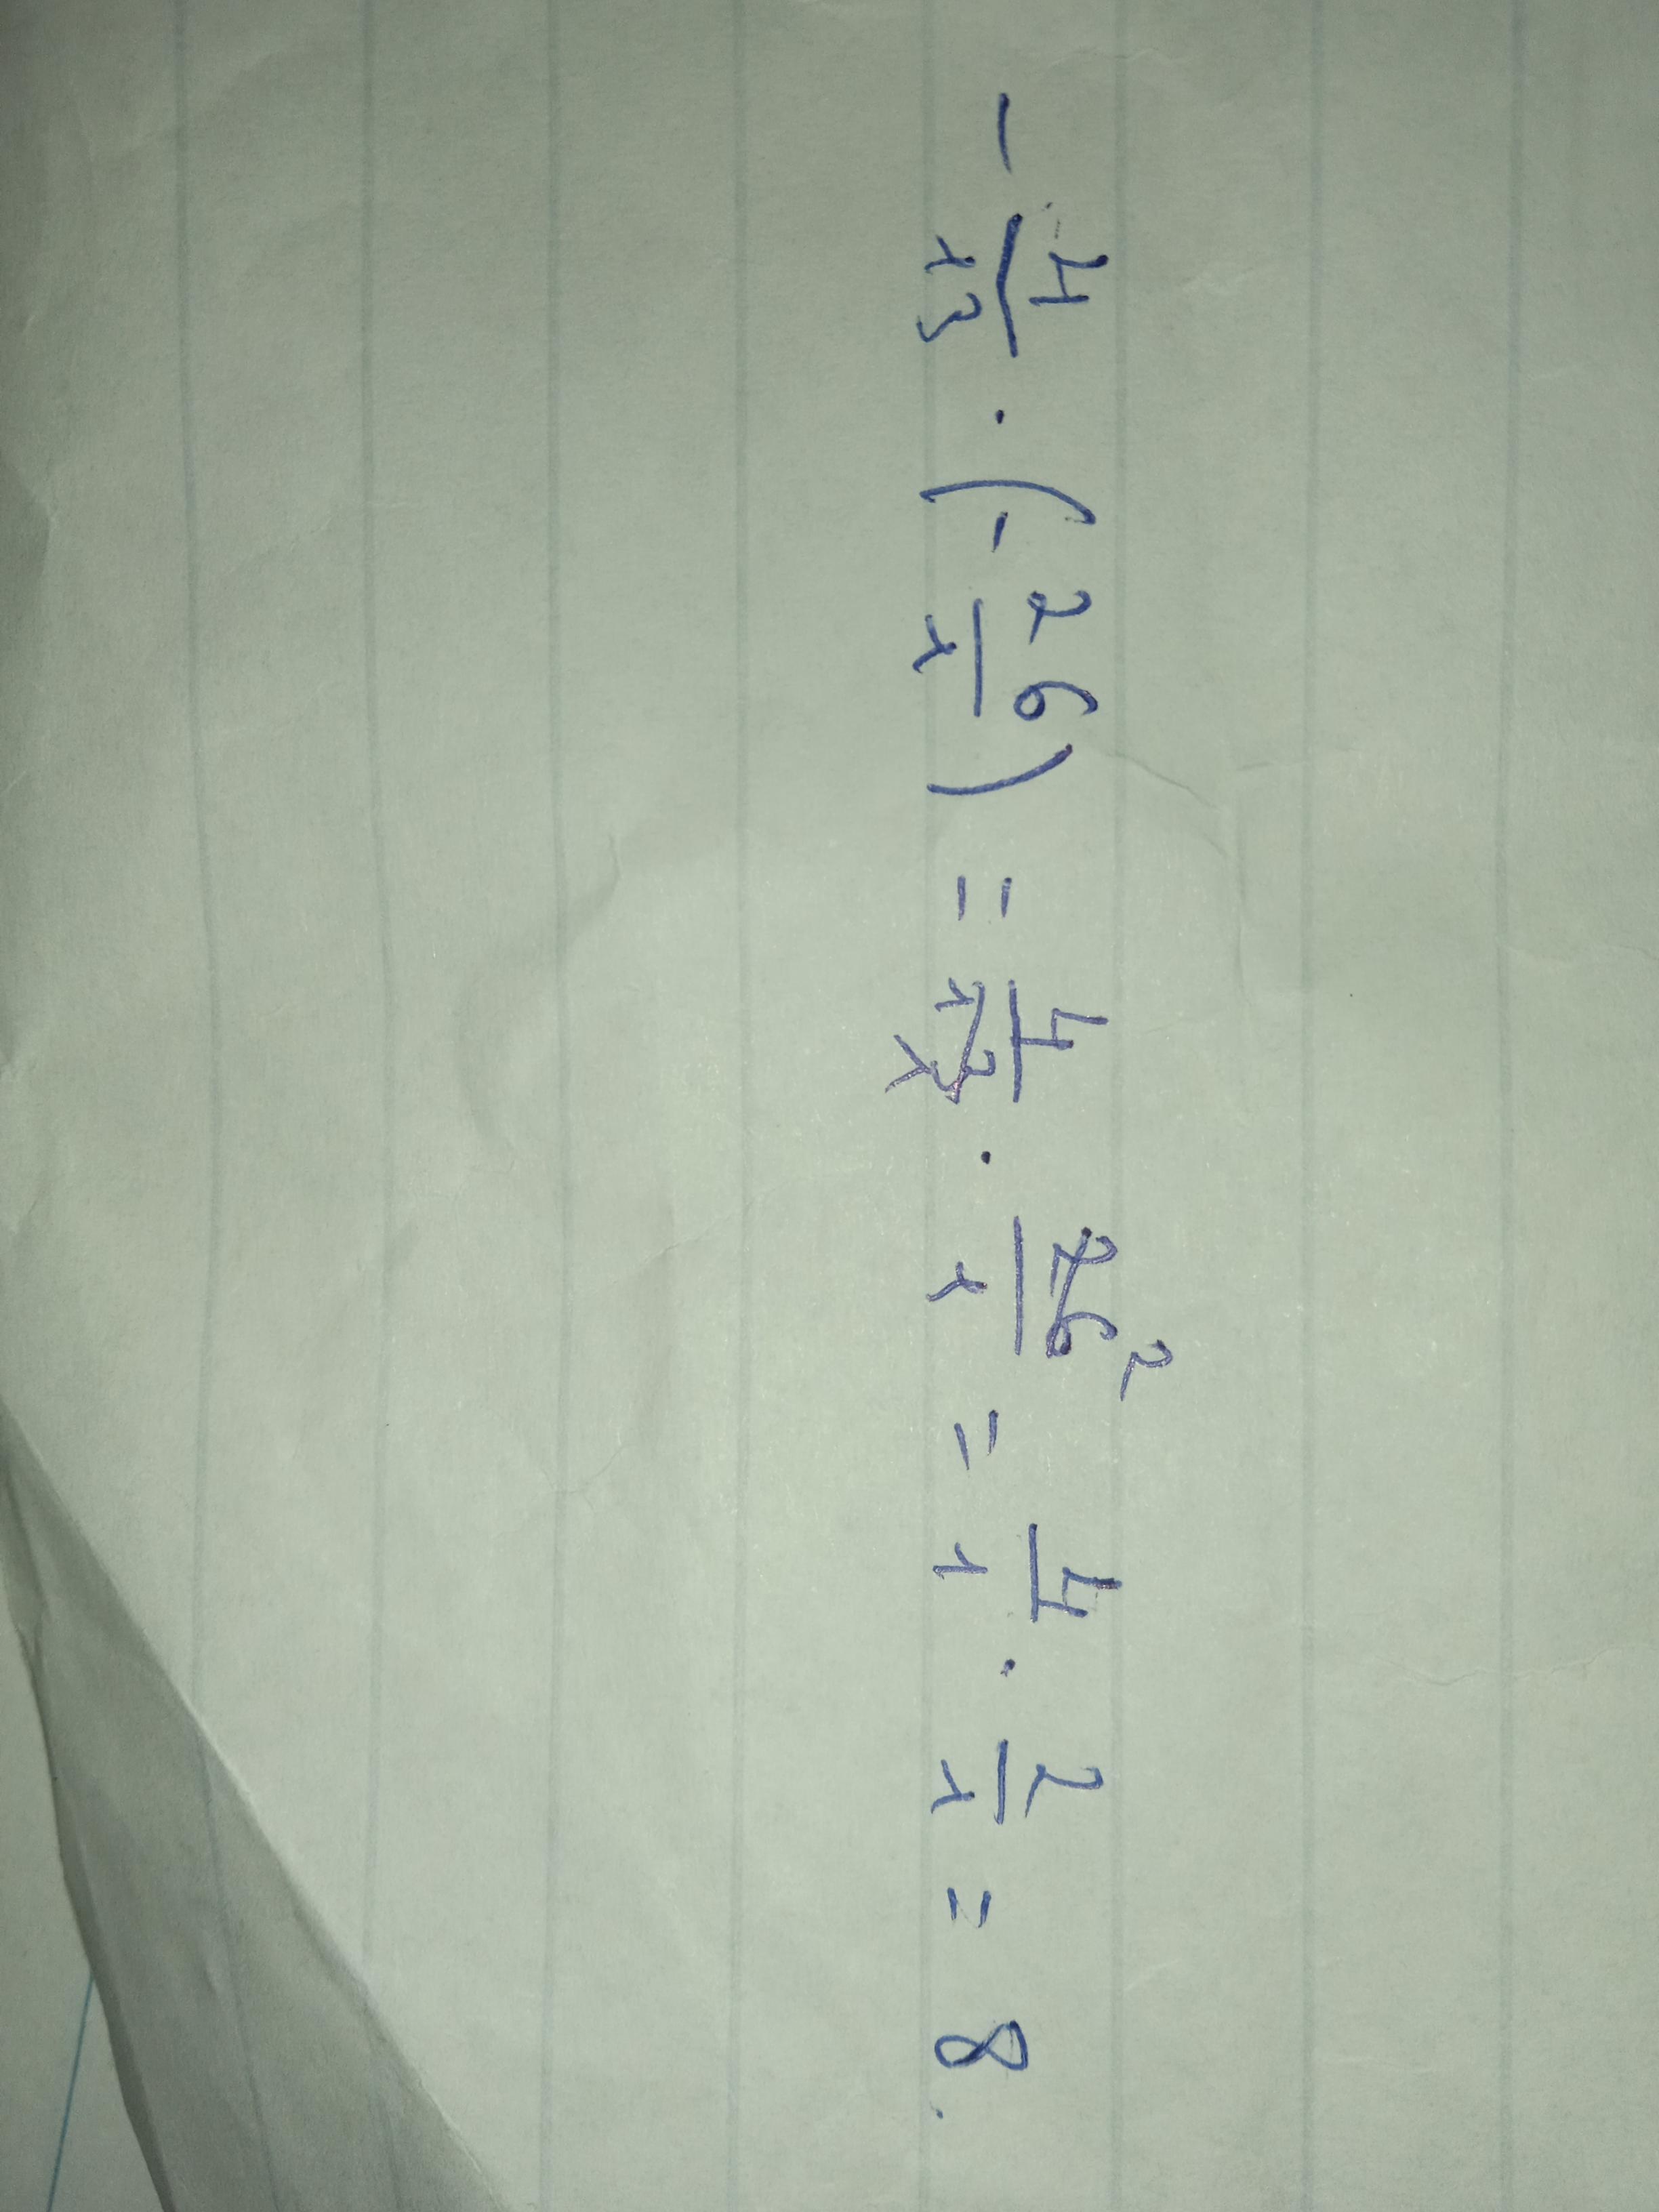 - 4/13 · (- 26/1) = 4/13 1 · 26 2/1 = 4/1 · 2/1 = 8.